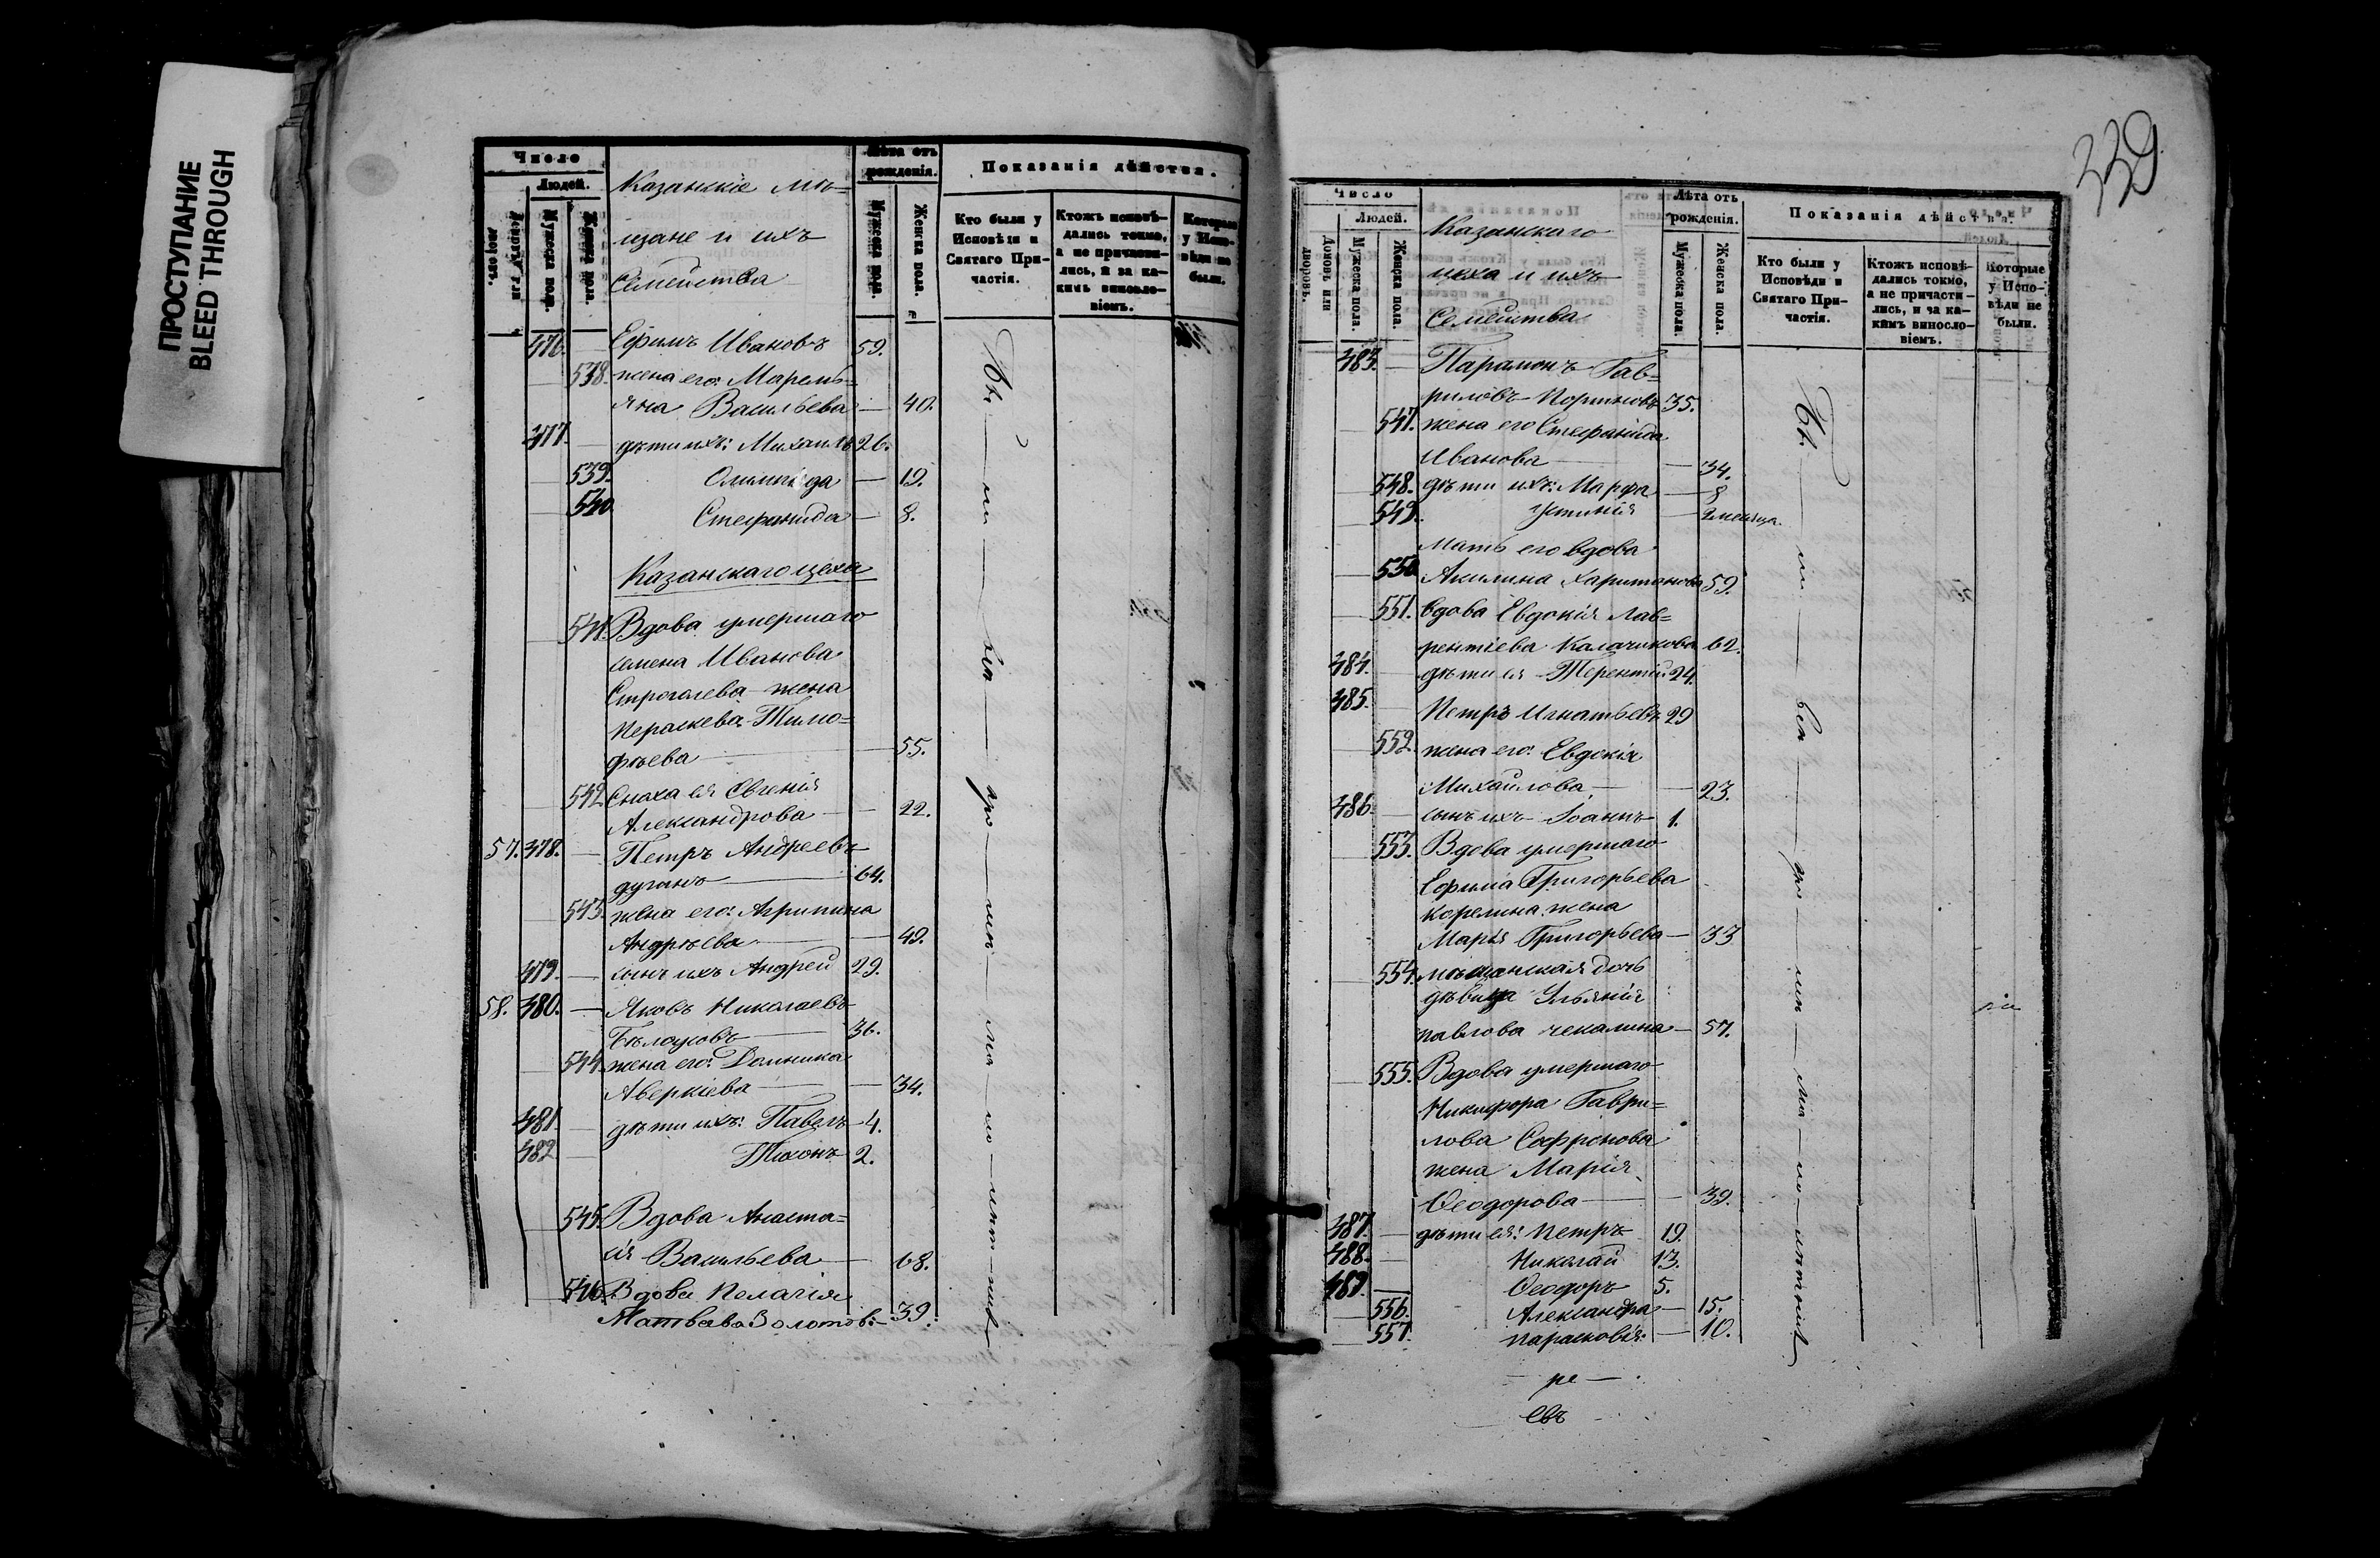 ПРОСТУПАНИЕ
BLEED THROUGH
339
Число
Людей.
Мужеска пола.
Женска пола.
Казанскіе мѣ=
щане и ихъ
Семейства
Лѣта отъ рожденія.
Мужеска пола.
Женска пола.
Показанія дѣйства.
Кто были у Исповѣди и Святаго При-
частія.
Ктожъ исповѣ-
дались токмо,
а не причасти-
лись, и за ка-
кимъ виносло-
віемъ.
Которые
у Испо-
вѣди не
были.
476. — Ефимъ Ивановъ 59.
— 538. жена его: Маремь=
яна Васильева — 40.
477. — дѣти ихъ: Михаилъ 26.
— 539. Олимпіада — 19.
— 540 Стефанида — 8.
Казанскаго цеха
— 541. Вдова умершаго
семена Иванова
Строгалева жена
Параскева Тимо=
фѣева — 55.
542. Сноха ея Евгенія
Александрова — 22.
57. 478. — Петръ Андреевъ
64.
543. жена его: Агрипина
Андрѣева — 49.
479. — сынъ ихъ Андрей 29.
58. 480. — Яковъ Николаевъ
Бѣлоусовъ 36.
544. жена его: Домника
Аверкіева — 34.
481 — дѣти ихъ: Павелъ 4.
482 — Тихонъ 2.
— 545. Вдова Анаста=
сія Васильева — 68.
546. Вдова Пелагія
Матвѣева Золотов: — 39.
Число
Людей.
Домовъ или дворовъ.
Мужеска пола.
Женска пола.
Казанскаго
цеха и ихъ
Семейства
Лѣта отъ
рожденія.
Мужеска пола.
Женска пола.
Показанія дѣйства.
Кто были у
Исповѣди и
Святаго При-
частія.
Ктожъ исповѣ-
дались токмо,
а не причасти-
лись, и за ка-
кимъ виносло-
віемъ.
Которые
у Испо-
вѣди не
были.
483. — Парамонъ Гав=
риловъ 35.
— 547. жена его Стефанида
Иванова — 34.
— 548. дѣти ихъ: Марфа — 8
— 549. Устинія — 2 месяца.
мать его вдова
— 550 Акилина Харитонова 59.
— 551. вдова Евдокія Лав=
рентіева Калачикова 62.
484. — дѣти ея Терентій 24.
485. — Петръ Игнатьевъ 29
— 552. жена его: Евдокія
Михайлова — 23.
486 — сынъ ихъ Іоаннъ 1.
— 553. Вдова умершаго
Ефима Григорьева
Корелина жена
Марія Григорьева — 33
— 554. мѣщанская дочь
дѣвица Ульянія
павлова чекалина — 57.
— 555. Вдова умершаго
Никифора Гаври=
лова Софронова
жена Марія
Ѳеодорова — 39.
487. — дѣти ея: Петръ 19.
488. — Николай 13.
489. — Ѳеодоръ 5.
— 556. Александра — 15.
— 557. Парасковія: — 10.
— ре —
евъ